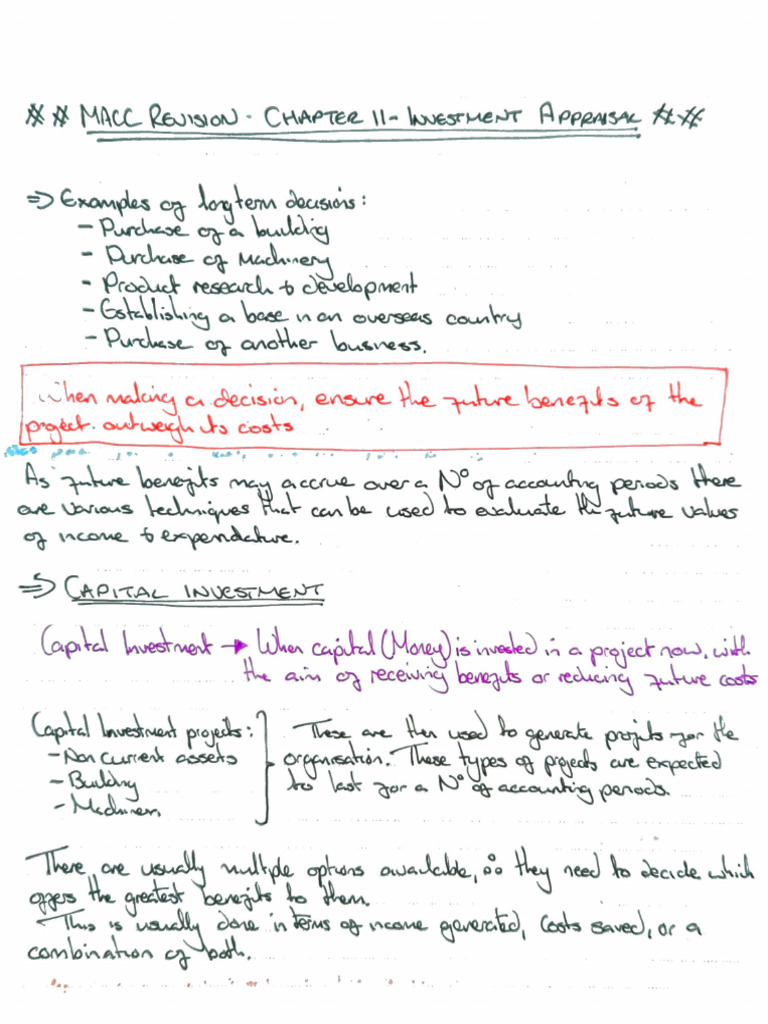 ## MACC REVISION - CHAPTER 11 - INVESTMENT APPRAISAL ##
=> Examples of longterm decisions:
- Purchase of a building
- Purchase of Machinery
- Product research & development
- Establishing a base in an overseas country
- Purchase of another business.
When making a decision, ensure the future benefits of the
project outweigh its costs
As future benefits may accrue over a Nº of accounting periods there
are various techniques that can be used to evaluate the future values
of income & expendature.
=> CAPITAL INVESTMENT
Capital Investment → When capital (Money) is invested in a project now, with
the aim of receiving benefits or reducing future costs
Capital Investment projects:
- Non current assets
- Building
- Machinery
These are then used to generate profits for the
organisation. These types of projects are expected
to last for a Nº of accounting periods.
There are usually multiple options available, ∴ they need to decide which
offers the greatest benefits to them.
- This is usually done in terms of income generated, costs saved, or a
combination of both.